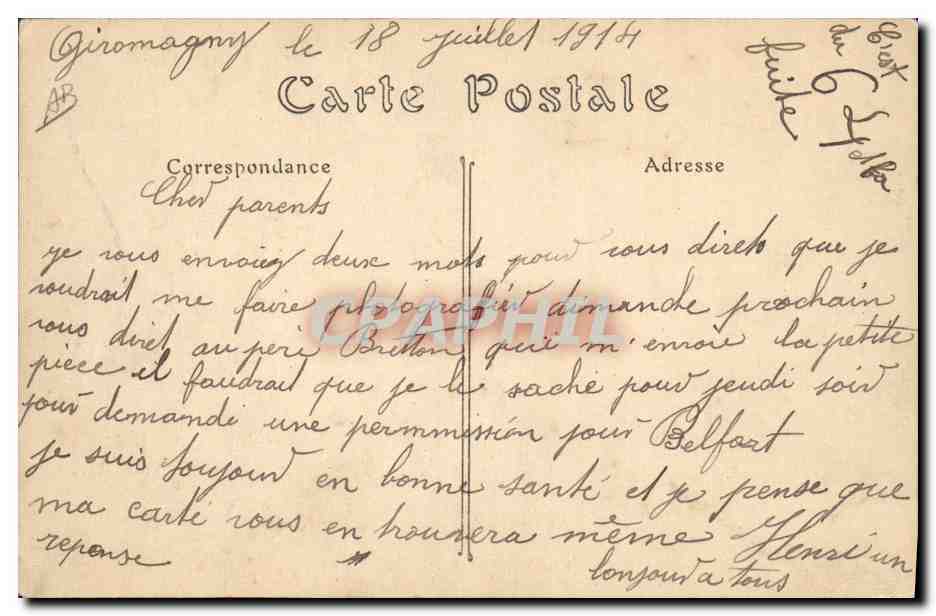 Giromagny le 18 juillet 1914
AB
C'est
du 6
fuite
Carte Postale
Correspondance
Adresse
Cher parents
je vous envoiez deux mots pour vous direts que je
voudrait me faire photographier dimanche prochain
vous diret au père Bretton qu'il m'envoie la petite
pièce il faudrait que je le sache pour jeudi soir
pour demandé une permmission pour Belfort
je suis toujour en bonne santé et je pense que
ma carte vous en trouvera même Henri un
reponse
bonjour a tous
CPAPHIL